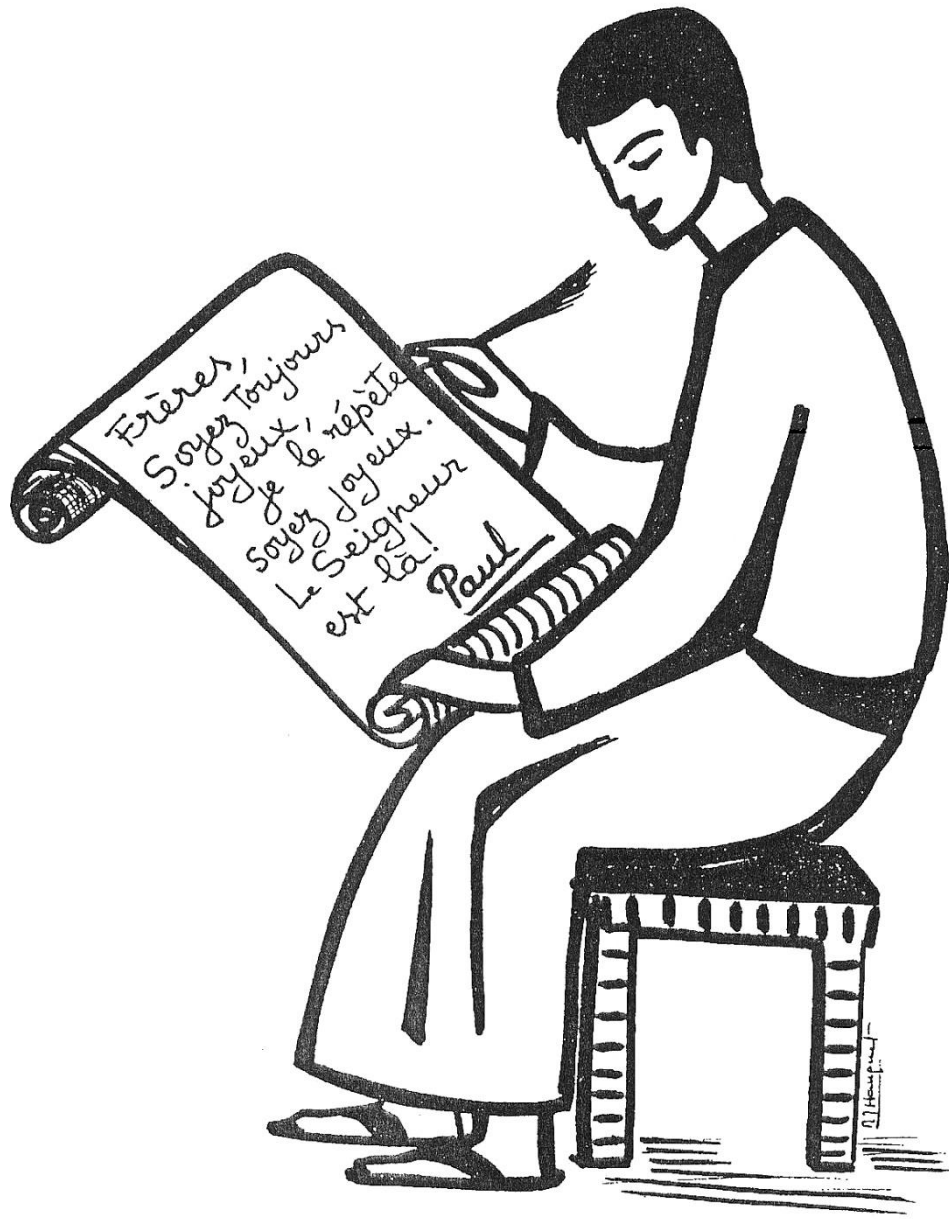 Frères,
Soyez Toujours
joyeux,
je le répète
soyez joyeux.
Le Seigneur
est là!
Paul